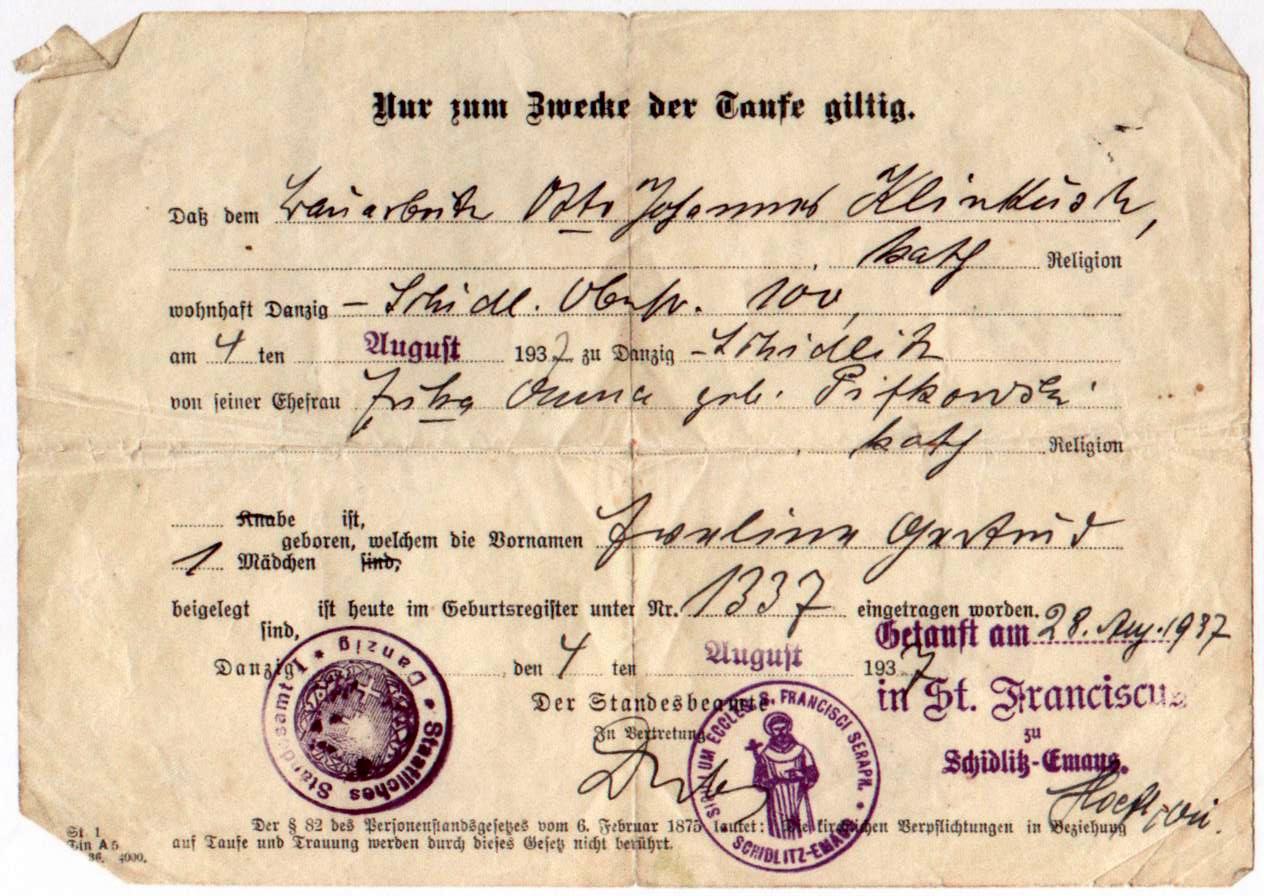 Nur zum Zwecke der Taufe giltig.
Daß dem Bauarbeiter Otto Johannes Klinkusch,
, kath Religion
wohnhaft Danzig – Schidl. Oberstr. 100,
am 4 ten August 1937 zu Danzig – Schidlitz
von seiner Ehefrau Anna geb.
, kath Religion
Knabe ist,
geboren, welchem die Vornamen Gertrud
1 Mädchen sind,
beigelegt ist heute im Geburtsregister unter Nr. 1337 eingetragen worden.
sind,
Getauft am 28. Aug. 1937
Danzig, den 4 ten August 1937
in St. Franciscus
Der Standesbeamte
zu
In Vertretung
Schidlitz-Emaus.
Staatliches Standesamt 1 * Danzig *
ECCLES. S. FRANCISCI SERAPH. • SCHIDLITZ-EMAUS
Der § 82 des Personenstandsgesetzes vom 6. Februar 1875 lautet: Die kirchlichen Verpflichtungen in Beziehung
auf Taufe und Trauung werden durch dieses Gesetz nicht berührt.
St. 1
Din A 5
36. 4000.